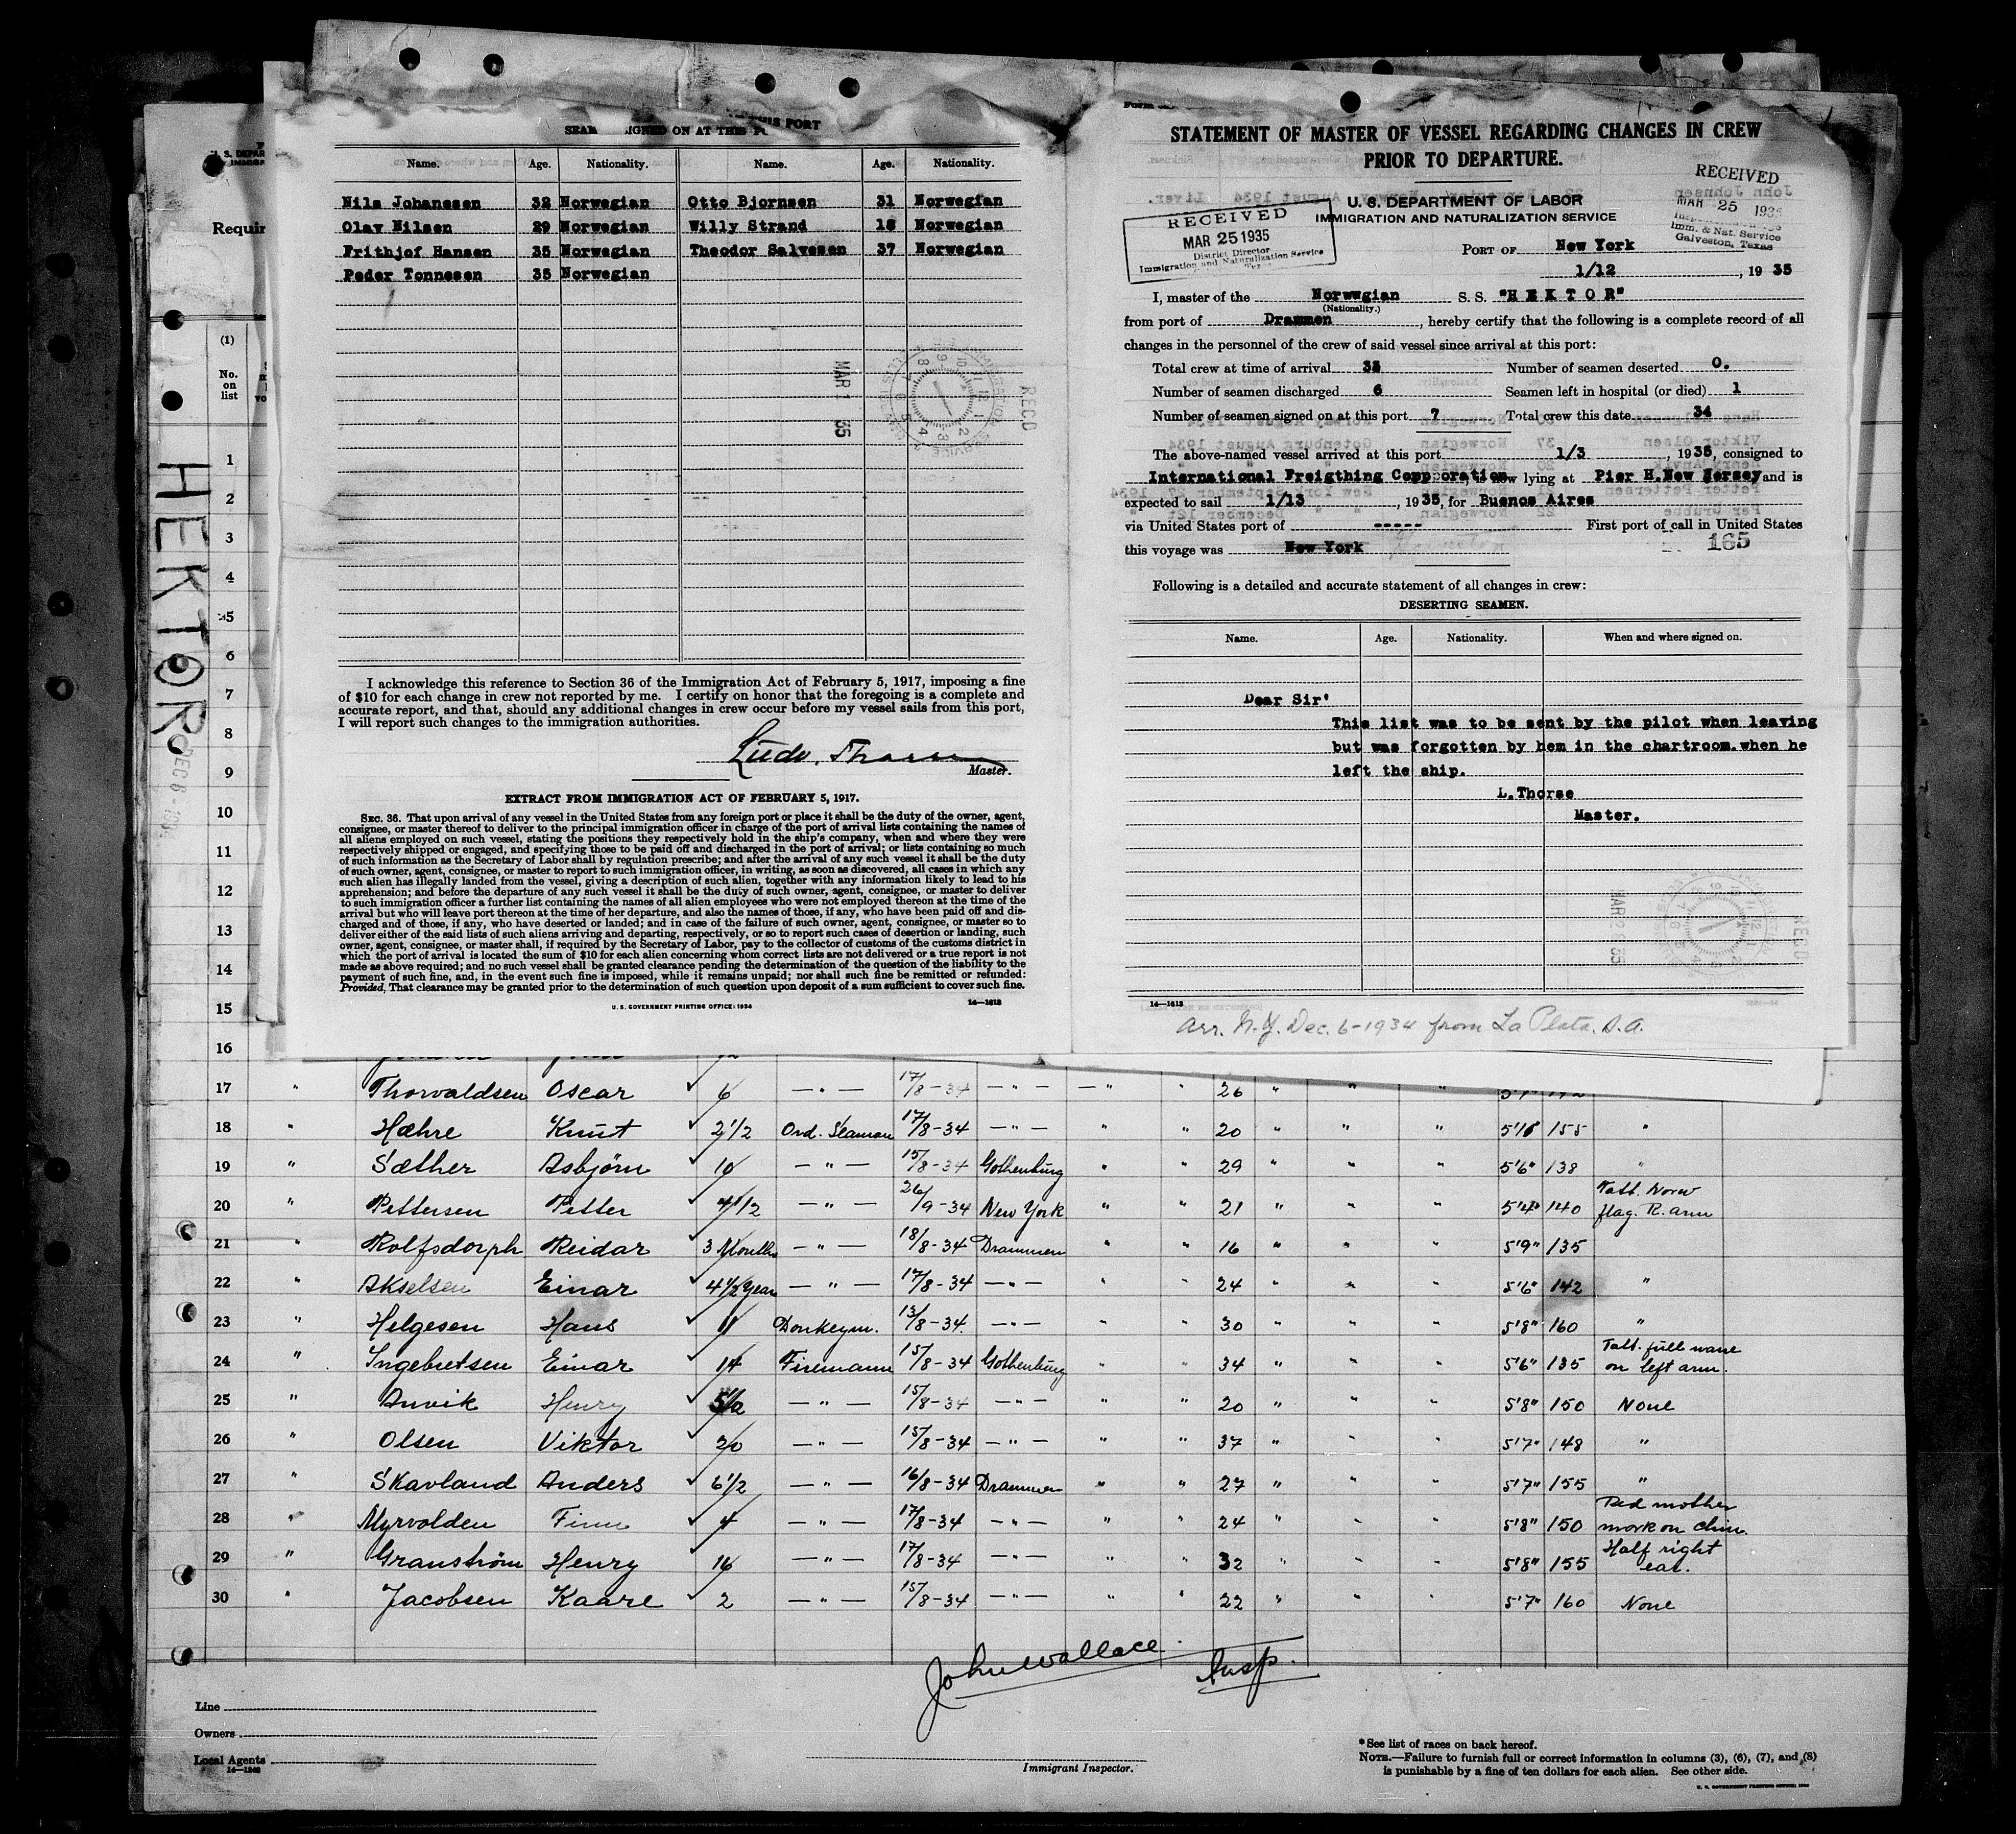 SEAMEN SIGNED ON AT THIS PORT
Name. Age. Nationality. Name. Age. Nationality.
Nils Johanesen 32 Norwegian Otto Bjornsen 31 Norwegian
Olav Nilsen 29 Norwegian Willy Strand 18 Norwegian
Frithjof Hansen 35 Norwegian Theodor Salvesen 37 Norwegian
Peder Tonnesen 35 Norwegian
MAR 1 35
REC'D
I acknowledge this reference to Section 36 of the Immigration Act of February 5, 1917, imposing a fine
of $10 for each change in crew not reported by me. I certify on honor that the foregoing is a complete and
accurate report, and that, should any additional changes in crew occur before my vessel sails from this port,
I will report such changes to the immigration authorities.
Ludv. Thorse
Master.
EXTRACT FROM IMMIGRATION ACT OF FEBRUARY 5, 1917.
SEC. 36. That upon arrival of any vessel in the United States from any foreign port or place it shall be the duty of the owner, agent,
consignee, or master thereof to deliver to the principal immigration officer in charge of the port of arrival lists containing the names of
all aliens employed on such vessel, stating the positions they respectively hold in the ship's company, when and where they were
respectively shipped or engaged, and specifying those to be paid off and discharged in the port of arrival; or lists containing so much
of such information as the Secretary of Labor shall by regulation prescribe; and after the arrival of any such vessel it shall be the duty
of such owner, agent, consignee, or master to report to such immigration officer, in writing, as soon as discovered, all cases in which any
such alien has illegally landed from the vessel, giving a description of such alien, together with any information likely to lead to his
apprehension; and before the departure of any such vessel it shall be the duty of such owner, agent, consignee, or master to deliver
to such immigration officer a further list containing the names of all alien employees who were not employed thereon at the time of the
arrival but who will leave port thereon at the time of her departure, and also the names of those, if any, who have been paid off and dis-
charged and of those, if any, who have deserted or landed; and in case of the failure of such owner, agent, consignee, or master so to
deliver either of the said lists of such aliens arriving and departing, respectively, or so to report such cases of desertion or landing, such
owner, agent, consignee, or master shall, if required by the Secretary of Labor, pay to the collector of customs of the customs district in
which the port of arrival is located the sum of $10 for each alien concerning whom correct lists are not delivered or a true report is not
made as above required; and no such vessel shall be granted clearance pending the determination of the question of the liability to the
payment of such fine, and, in the event such fine is imposed, while it remains unpaid; nor shall such fine be remitted or refunded:
Provided, That clearance may be granted prior to the determination of such question upon deposit of a sum sufficient to cover such fine.
U. S. GOVERNMENT PRINTING OFFICE: 1934 14—1613
STATEMENT OF MASTER OF VESSEL REGARDING CHANGES IN CREW
PRIOR TO DEPARTURE.
U. S. DEPARTMENT OF LABOR
IMMIGRATION AND NATURALIZATION SERVICE
RECEIVED
MAR 25 1935
District Director
Immigration and Naturalization Service
RECEIVED
MAR 25 1935
Imm. & Nat. Service
Galveston, Texas
PORT OF New York
1/12, 1935
I, master of the Norwwgian S. S. "HEKTOR"
(Nationality.)
from port of Drammen, hereby certify that the following is a complete record of all
changes in the personnel of the crew of said vessel since arrival at this port:
Total crew at time of arrival 33 Number of seamen deserted 0.
Number of seamen discharged 6 Seamen left in hospital (or died) 1
Number of seamen signed on at this port 7 Total crew this date 34
The above-named vessel arrived at this port 1/3, 1935, consigned to
International Freigthing Copporation now lying at Pier H.New Jersey and is
expected to sail 1/13, 1935, for Buenos Aires
via United States port of ----- First port of call in United States
this voyage was New York
165
Following is a detailed and accurate statement of all changes in crew:
DESERTING SEAMEN.
Name. Age. Nationality. When and where signed on.
Dear Sir'
This list was to be sent by the pilot when leaving
but was forgotten by hem in the chartroom.when he
left the ship.
L.Thorse
Master.
14—1613
Arr. N.Y. Dec. 6-1934 from La Plata. S.A.
HEKTOR
DEC 6-
(1)
No. on list
1
2
3
4
5
6
7
8
9
10
11
12
13
14
15
16
17 " Thorvaldsen Oscar ✓ 6 —"— 17/8-34 —"— —" " 26 " " "
18 " Hæhre Knut ✓ 2 1/2 Ord. Seaman 17/8-34 —"— " 20 " " " 155 "
19 " Sæther Asbjörn ✓ 10 —"— 15/8-34 Gothenburg " " 29 " " " 5'6" 138 "
20 " Pettersen Petter ✓ 4 1/2 —"— 26/9-34 New York " " 21 " " " 5'4" 140 Tatt. Norw flag. R. arm
21 " Rolfsdorph Reidar ✓ 3 Months —"— 18/8-34 Drammen " " 16 " " " 5'9" 135
22 " Akselsen Einar ✓ 4 1/2 Year —"— 17/8-34 —"— " " 24 " " " 5'6" 142 "
23 " Helgesen Hans ✓ 11 Donkeym. 13/8-34. —"— " " 30 " " " 5'8" 160 "
24 " Ingebretsen Einar ✓ 14 Firemann 15/8-34 Gothenburg " " 34 " " " 5'6" 135 Tatt. full name on left arm.
25 " Anvik Henry ✓ 5 1/2 —"— 15/8-34 —"— " " 20 " " " 5'8" 150 None
26 " Olsen Viktor ✓ 20 —"— 15/8-34 —"— " " 37 " " " 5'7" 148 "
27 " Skavland Anders ✓ 6 1/2 —"— 16/8-34 Drammen " " 27 " " " 5'7" 155 "
28 " Myrvolden Finn ✓ 4 —"— 17/8-34 —"— " " 24 " " " 5'8" 150 Red mother mark on chin.
29 " Granström Henry ✓ 16 —"— 17/8-34 —"— " " 32 " " " 5'8" 155 Half right ear.
30 " Jacobsen Kaare ✓ 2 —"— 15/8-34 —"— " " 22 " " " 5'7" 160 None
John Wallace Insp.
Line
Owners
Local Agents
14—1240
Immigrant Inspector.
*See list of races on back hereof.
NOTE.—Failure to furnish full or correct information in columns (3), (6), (7), and (8)
is punishable by a fine of ten dollars for each alien. See other side.